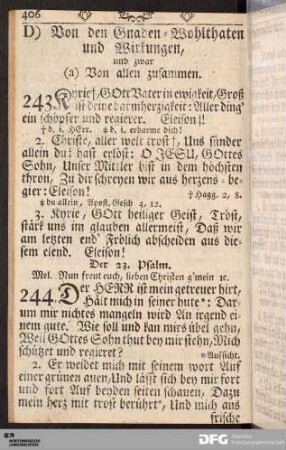 406
D) Von den Gnaden-Wohlthaten
und Wirkungen,
und zwar
(a) Von allen zusammen.
243. Kyrie†, GOtt Vater in ewigkeit, Groß
ist deine barmherzigkeit: Aller ding'
ein schöpfer und regierer. Eleison‡!
† d. i. HErr. ‡ d. i. erbarme dich!
2. Christe, aller welt trost†, Uns sünder
allein du‡ hast erlößt: O JESU, GOttes
Sohn, Unser Mittler bist in dem höchsten
thron, Zu dir schreyen wir aus herzens-be-
gier: Eleison! † Hagg. 2, 8.
‡ du allein, Apost. Gesch. 4, 12.
3. Kyrie, GOtt heiliger Geist, Tröst,
stärk uns im glauben allermeist, Daß wir
am letzten end' Frölich abscheiden aus die-
sem elend. Eleison!
Der 23. Psalm.
Mel. Nun freut euch, lieben Christen g'mein ꝛc.
244. Der HERR ist mein getreuer hirt,
Hält mich in seiner hute*: Dar-
um mir nichtes mangeln wird An irgend ei-
nem gute. Wie soll und kan mirs übel gehn,
Weil GOttes Sohn thut bey mir stehn, Mich
schützet und regieret? * Aufsicht.
2. Er weidet mich mit seinem wort Auf
einer grünen auen, Und lässt sich bey mir fort
und fort Auf beyden seiten schauen, Dazu
mein herz mit trost berührt, Und mich ans
frische
DFG Deutsche
Forschungsgemeinschaft